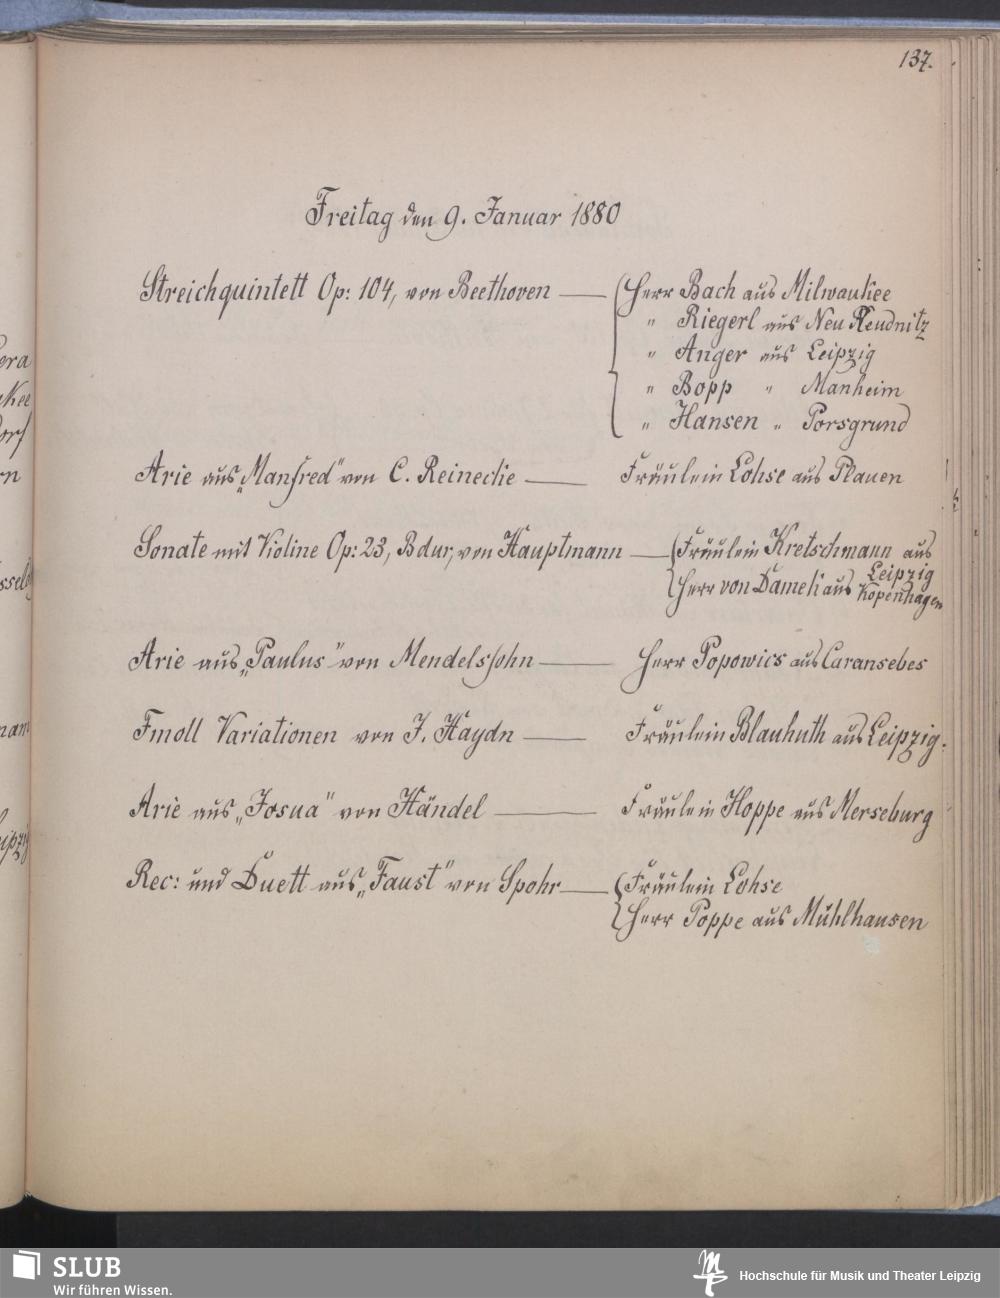 137.
Freitag den 9. Januar 1880
Streichquintett Op: 104, von Beethoven — Herr Bach aus Milwaukee
" Riegerl aus Neu Reudnitz
" Anger aus Leipzig
" Bopp " Manheim
" Hansen " Porsgrund
Arie aus „Manfred" von C. Reinecke — Fräulein Lohse aus Plauen
Sonate mit Violine Op: 23, Bdur, von Hauptmann — Fräulein Kretschmann aus
Leipzig
Herr von Dameck aus Kopenhagen
Arie aus „Paulus" von Mendelssohn — Herr Popowics aus Caransebes
Fmoll Variationen von J. Haydn — Fräulein Blauhuth aus Leipzig.
Arie aus „Josua" von Händel — Fräulein Hoppe aus Merseburg
Rec: und Duett aus „Faust" von Spohr — Fräulein Lohse
Herr Poppe aus Mühlhausen
SLUB
Wir führen Wissen.
Hochschule für Musik und Theater Leipzig